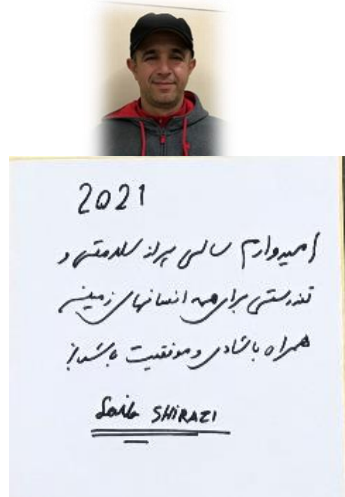 2021
امیدوارم سالی پر از سلامتی و
تندرستی برای همه انسانهای زمین
همراه با شادی و موفقیت باشد
SHIRAZI